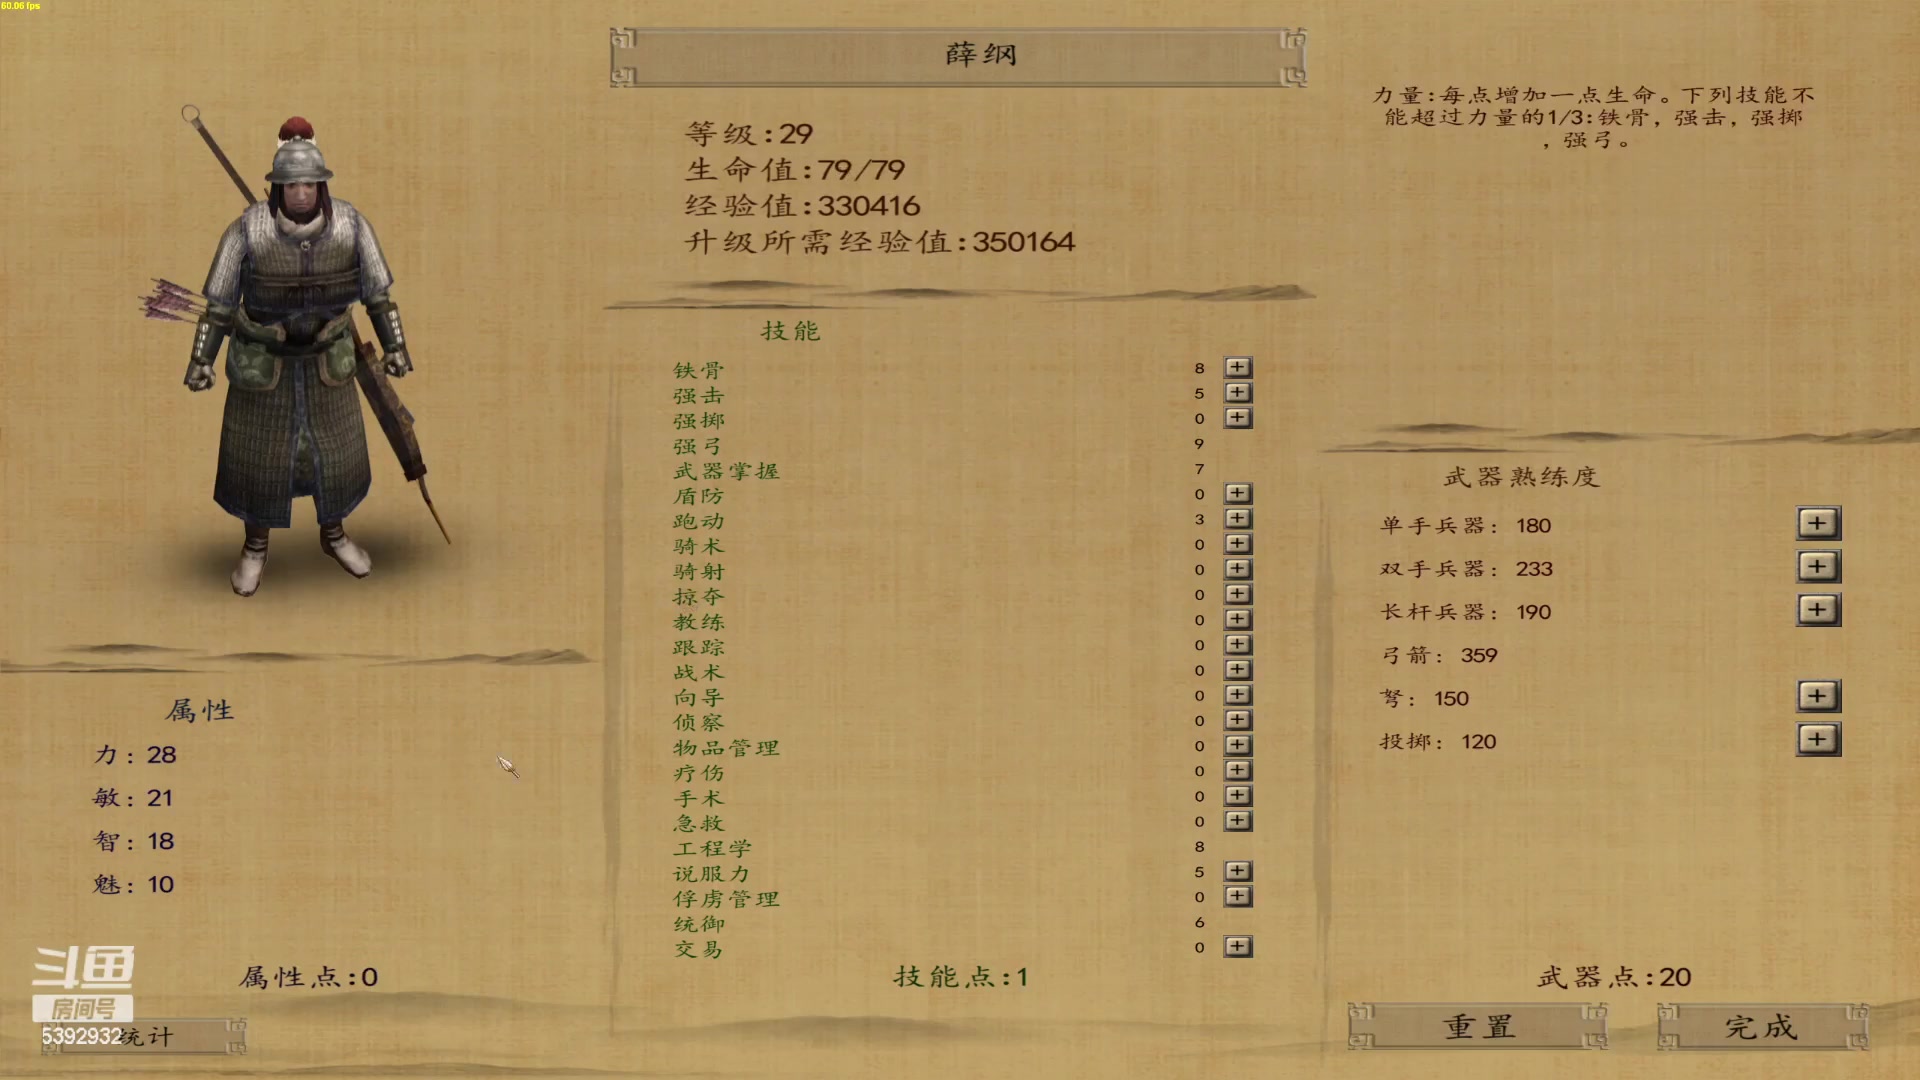 60.06 fps
薛纲
力量:每点增加一点生命。下列技能不
能超过力量的1/3:铁骨，强击，强掷
，强弓。
等级:29
生命值:79/79
经验值:330416
升级所需经验值:350164
技能
铁骨 8 +
强击 5 +
强掷 0 +
强弓 9
武器掌握 7
盾防 0 +
跑动 3 +
骑术 0 +
骑射 0 +
掠夺 0 +
教练 0 +
跟踪 0 +
战术 0 +
向导 0 +
侦察 0 +
物品管理 0 +
疗伤 0 +
手术 0 +
急救 0 +
工程学 8
说服力 5 +
俘虏管理 0 +
统御 6
交易 0 +
技能点:1
武器熟练度
单手兵器: 180 +
双手兵器: 233 +
长杆兵器: 190 +
弓箭: 359
弩: 150 +
投掷: 120 +
武器点:20
属性
力: 28
敏: 21
智: 18
魅: 10
属性点:0
斗鱼
房间号
5392932
统计
重置
完成